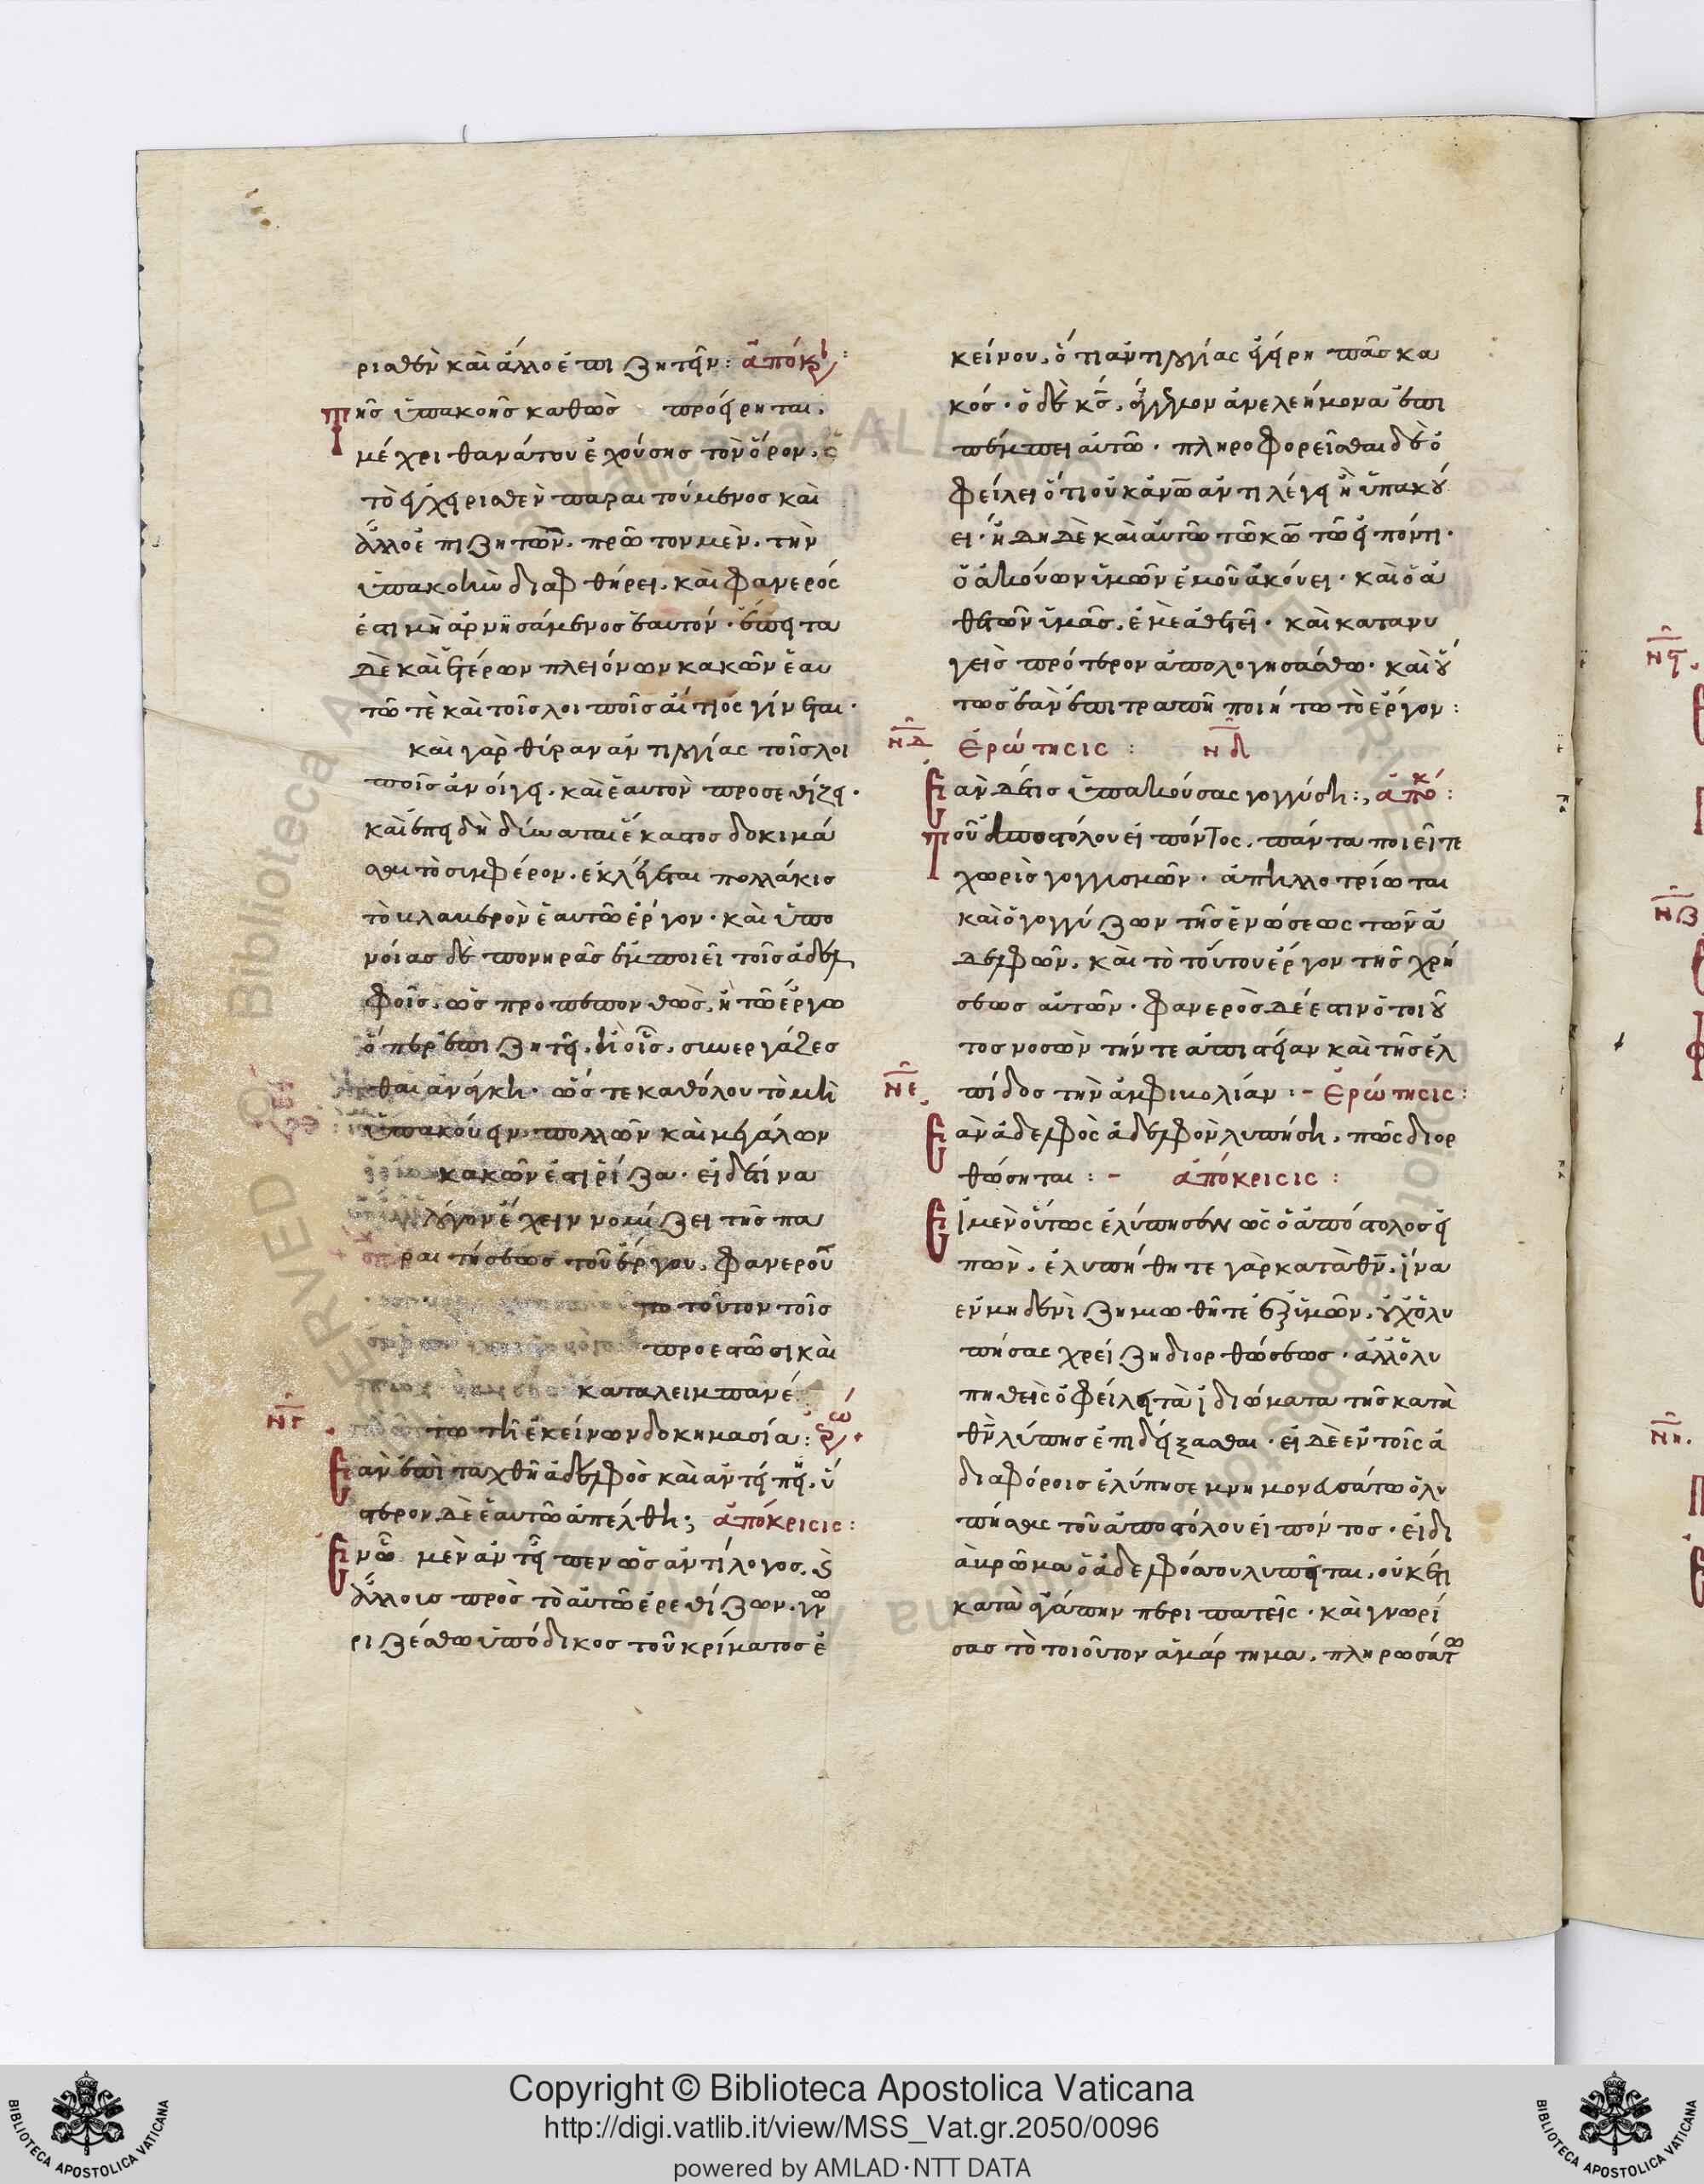 ριασθὲν καὶ ἄλλο ἐπιζητεῖν: ἀπόκρ:
Τῆς ὑπακοῆς καθὼς προείρηται,
μέχρι θανάτου ἐχούσης τὸν ὅρον. ὁ
τὸ ἐγχειρισθὲν παραιτούμενος καὶ
ἄλλο ἐπιζητῶν. πρῶτον μὲν. τὴν
ὑπακοὴν διαφθήρει. καὶ φανερός
ἐστι μὴ ἀρνησάμενος ἑαυτόν. ἔπειτα
δὲ καὶ ἑτέρων πλειόνων κακῶν ἑαυ
τῶ τὲ καὶ τοῖς λοιποῖς αἴτιος γίνεται.
καὶ γὰρ θύραν ἀντιλογίας τοῖς λοι
ποῖς ἀνοίγει. καὶ ἑαυτὸν προσεθίζει.
καὶ ἐπειδὴ δύναται ἕκαστος δοκιμά
σαι τὸ συμφέρον. ἐκλέγεται πολλάκις
τὸ βλαβερὸν ἑαυτῶ ἔργον. καὶ ὑπο
νοίας δὲ πονηρᾶς ἐμποιεῖ τοῖς ἀδελ
φοῖς. ὡς προπεπονθὼς, ἢ τῶ ἔργω
ὅπερ ἐπιζητεῖ. ἢ οἷς. συνεργάζεσ
θαι ἀνάγκη. ὥστε καθόλου τὸ μὴ
ὑπακούειν. πολλῶν καὶ μεγάλων
κακῶν ἐστι ῥίζα. εἰ δέ τινα
λόγον ἔχειν νομίζει τῆς πα
ραιτήσεως τοῦ ἔργου. φανεροῦ
τω τοῦτον τοῖς
προεστῶσι καὶ
καταλειμπανέ
τω τῆ ἐκείνων δοκημασία: ἐρώ.
νγ
Ἐὰν ἐπιταχθῆ ἀδελφὸς καὶ ἀντείπῃ. ὕ
στερον δὲ ἑαυτῶ ἀπέλθη; ἀπόκρισις:
Ἐν ὧ μὲν ἀντεῖπεν ὡς ἀντίλογος. καὶ
ἄλλους πρὸς τὸ αὐτῶ ἐρεθίζων. γνω
ριζέσθω ὑπόδικος τοῦ κρίματος ἐ
κείνου. ὅτι ἀντιλογίας ἐγείρη πᾶς κα
κός. ὁ δὲ κς, ἄγγελον ἀνελεήμονα ἐπι
πέμπει αὐτῶ. πληροφορεῖσθαι δὲ ὀ
φείλει ὅτι οὐκ ἀνω ἀντιλέγει ἢ ὑπακού
ει. ἤδη δὲ καὶ αὐτῶ τῶ κω τῶ εἰπόντι.
ὁ ἀκούων ὑμῶν ἐμοῦ ἀκούει. καὶ ὁ ἀ
θετῶν ὑμᾶς. ἐμὲ ἀθετεῖ. καὶ κατανυ
γεὶς πρότερον ἀπολογησάσθω. καὶ οὕ
τως ἐὰν ἐπιτραπῆ ποιήτω τὸ ἔργον:
νδ Ἐρώτησις: νδ
Ἐὰν δέ τις ὑπακούσας γογγύση:, ἀπόκ:
Τοῦ ἀποστόλου εἰπόντος. πάντα ποιεῖτε
χωρὶς γογγισμῶν. ἀπηλλοτρίωται
καὶ ὁ γογγύζων τῆς ἑνώσεως τῶν ἀ
δελφῶν. καὶ τὸ τούτου ἔργον τῆς χρή
σεως αὐτῶν. φανερὸς δέ ἐστιν ὁ τοιοῦ
τος νοσῶν τήν τε ἀπιστείαν καὶ τῆς ἐλ
νε πίδος τὴν ἀμφιβολίαν:- Ἐρώτησις:
Ἐὰν ἀδελφὸς ἀδελφὸν λυπήση. πῶς διορ
θώσηται:- ἀπόκρισις:
Εἰ μὲν οὕτως ἐλύπησεν ὡς ὁ ἀπόστολος εἰ
πὼν. ἐλυπήθητε γὰρ κατὰ θν. ἵνα
ἐν μηδενὶ ζημιωθῆτε ἐξ ὑμῶν. οὐχ ὁ λυ
πήσας χρείζη διορθώσεως. ἀλλ ὁ λυ
πηθεὶς ὀφείλει τὰ ἰδιώματα τῆς κατὰ
θν λύπης ἐπιδείξασθαι. εἰ δὲ ἐν τοῖς ἀ
διαφόροις ἐλύπησε μνημονευσάτω ὁ λυ
πήσας τοῦ ἀποστόλου εἰπόντος. εἰ δι
ὰ βρῶμα ὁ ἀδελφός σου λυπεῖται. οὐκέτι
κατὰ ἀγάπην περιπατεῖς. καὶ γνωρί
σας τὸ τοιοῦτον ἁμάρτημα. πληρωσάτω
νς
νζ
νη.
Copyright © Biblioteca Apostolica Vaticana
http://digi.vatlib.it/view/MSS_Vat.gr.2050/0096
powered by AMLAD·NTT DATA
BIBLIOTECA APOSTOLICA VATICANA
BIBLIOTECA APOSTOLICA VATICANA